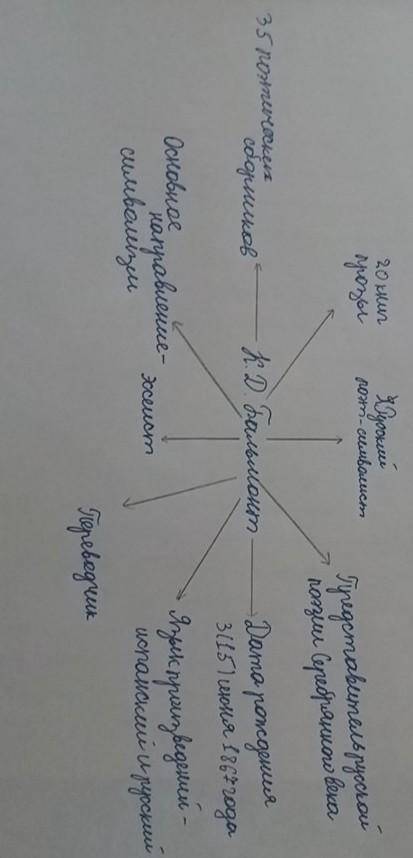 20 книг
прозы
Русский
поэт-символист
Представитель русской
поэзии Серебряного века
35 поэтических
сборников
К. Д. Бальмонт
Дата рождения
3(15) июня 1867 года
Основное
направление -
символизм
Эссеист
Переводчик
Язык произведений -
испанский и русский